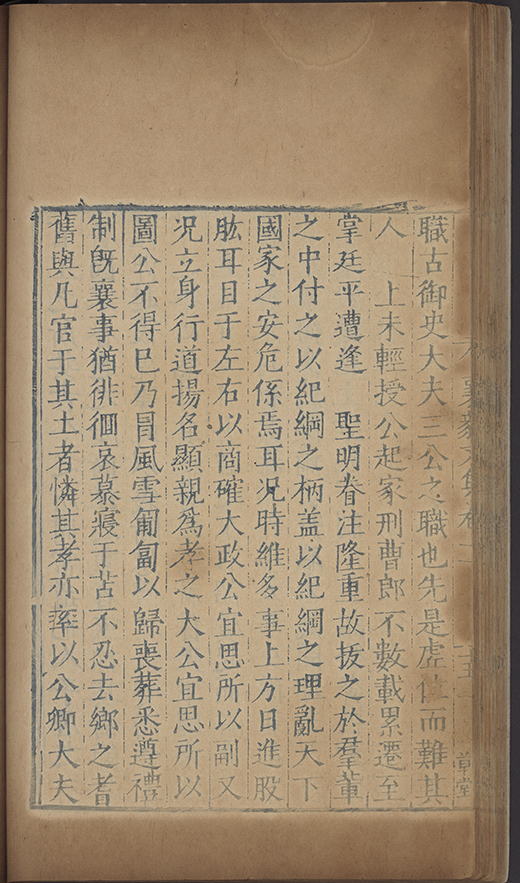 職古御史大夫三公之職也先是虛位而難其
人　上未輕授公起家刑曹郎不數載累遷至
掌廷平遭逢　聖明眷注隆重故拔之於羣軰
之中付之以紀綱之柄盖以紀綱之理亂天下
國家之安危係焉耳况時維多事上方日進股
肱耳目于左右以商確大政公宜思所以副又
况立身行道揚名顯親爲孝之大公宜思所以
圖公不得巳乃冒風雪匍匐以歸喪葬悉遵禮
制旣襄事猶徘徊哀慕寢于苫不忍去鄉之耆
舊與凡官于其土者憐其孝亦率以公卿大夫
草堂